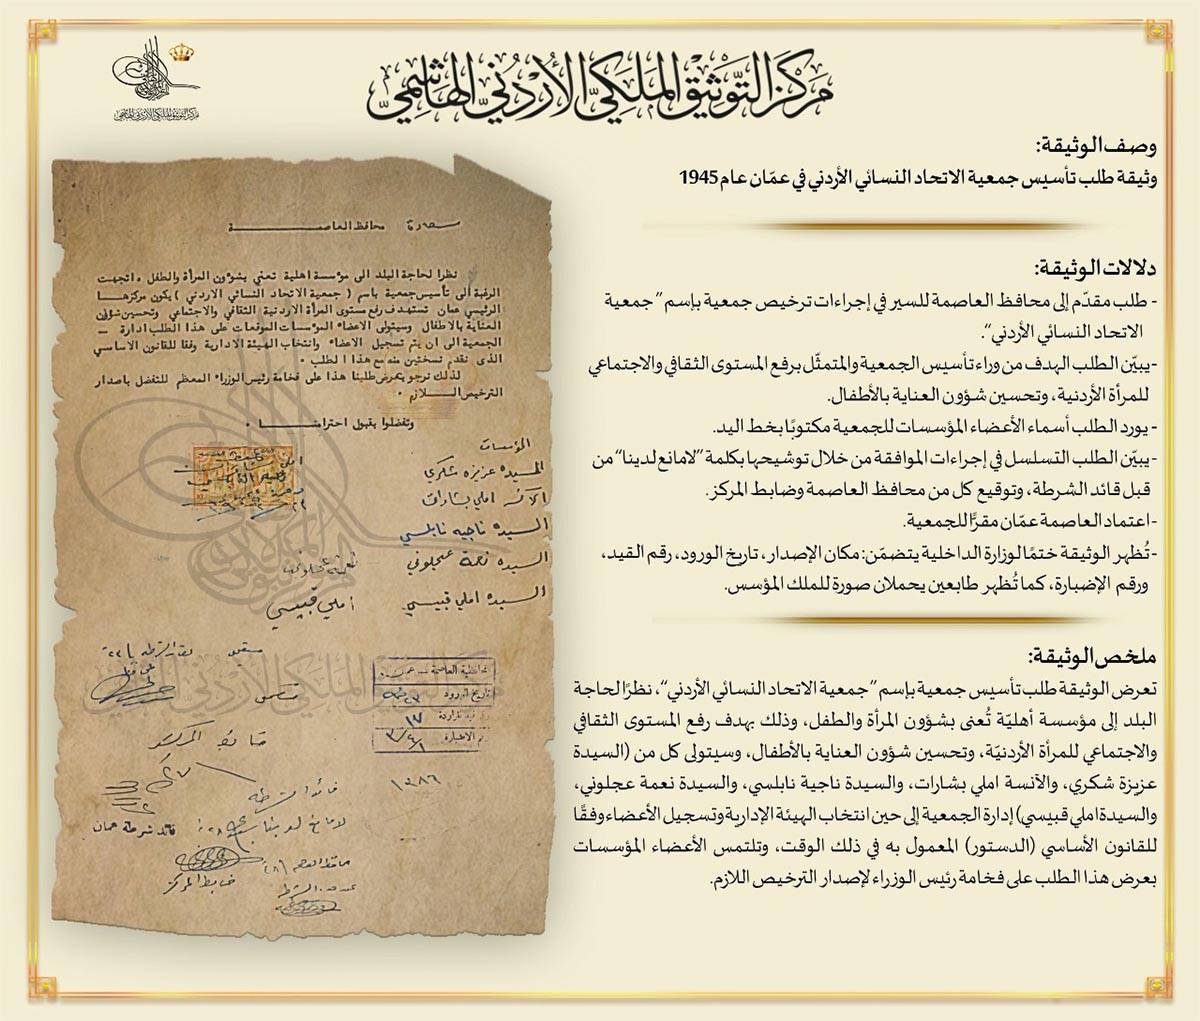 مركز التوثيق الملكي الأردني الهاشمي
مركز التوثيق الملكي الأردني الهاشمي
وصف الوثيقة:
وثيقة طلب تأسيس جمعية الاتحاد النسائي الأردني في عمّان عام 1945
دلالات الوثيقة:
- طلب مقدّم إلى محافظ العاصمة للسير في إجراءات ترخيص جمعية بإسم "جمعية
الاتحاد النسائي الأردني".
-يبيّن الطلب الهدف من وراء تأسيس الجمعية والمتمثّل برفع المستوى الثقافي والاجتماعي
للمرأة الأردنية، وتحسين شؤون العناية بالأطفال.
- يورد الطلب أسماء الأعضاء المؤسسات للجمعية مكتوبًا بخط اليد.
- يبيّن الطلب التسلسل في إجراءات الموافقة من خلال توشيحها بكلمة "لامانع لدينا" من
قبل قائد الشرطة، وتوقيع كل من محافظ العاصمة وضابط المركز.
-اعتماد العاصمة عمّان مقرًّا للجمعية.
-تُظهر الوثيقة ختمًا لوزارة الداخلية يتضمّن: مكان الإصدار، تاريخ الورود، رقم القيد،
ورقم الإضبارة، كما تُظهر طابعين يحملان صورة للملك المؤسس.
ملخص الوثيقة:
تعرض الوثيقة طلب تأسيس جمعية بإسم "جمعية الاتحاد النسائي الأردني"، نظرًا لحاجة
البلد إلى مؤسسة أهليّة تُعنى بشؤون المرأة والطفل، وذلك بهدف رفع المستوى الثقافي
والاجتماعي للمرأة الأردنيّة، وتحسين شؤون العناية بالأطفال، وسيتولى كل من (السيدة
عزيزة شكري، والآنسة املي بشارات، والسيدة ناجية نابلسي، والسيدة نعمة عجلوني،
والسيدة املي قبيسي) إدارة الجمعية إلى حين انتخاب الهيئة الإدارية وتسجيل الأعضاء وفقًا
للقانون الأساسي (الدستور) المعمول به في ذلك الوقت، وتلتمس الأعضاء المؤسسات
بعرض هذا الطلب على فخامة رئيس الوزراء لإصدار الترخيص اللازم.
سعادة محافظ العاصمـــة
نظرا لحاجة البلد الى مؤسسة اهلية تعني بشؤون المرأة والطفل، اتجهت
الرغبة الى تأسيس جمعية باسم (جمعية الاتحاد النسائي الاردني) يكون مركزهــا
الرئيسي عمان تستهدف رفع مستوى المرأة الاردنية الثقافي والاجتماعي وتحسين شؤون
العناية بالاطفال وسيتولى الاعضاء المؤسسات الموقعات على هذا الطلب ادارة
الجمعية الى ان يتم تسجيل الاعضاء وانتخاب الهيئة الادارية وفقا للقانون الاساسي
الذى نقدم نسختين منه مع هذا الطلب .
لذلك نرجو بعرض طلبنا هذا على فخامة رئيس الوزراء المعظم للتفضل باصدار
الترخيص الـــلازم .
وتفضلوا بقبول احترامنــــا .
المؤسسات
السيده عزيزه شكري
الآنسه املي بشارات
السيده ناجيه نابلسي
السيده نعمة عجلوني
السيده املي قبيسي
أملي قبيسي
محافظة العاصمة
تاريخ الورود
١٧
رقم الاضبارة
ضابط المركز
قائد الشرطة
لا مانع لدينا
قائد شرطة عمان
محافظ العاصمة
ضابط المركز
١٢٨٦